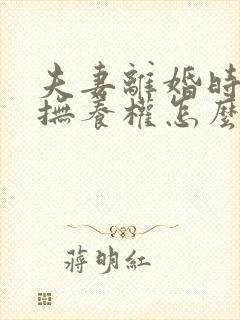 夫妻離婚時
撫養權怎麼
蔣明紅